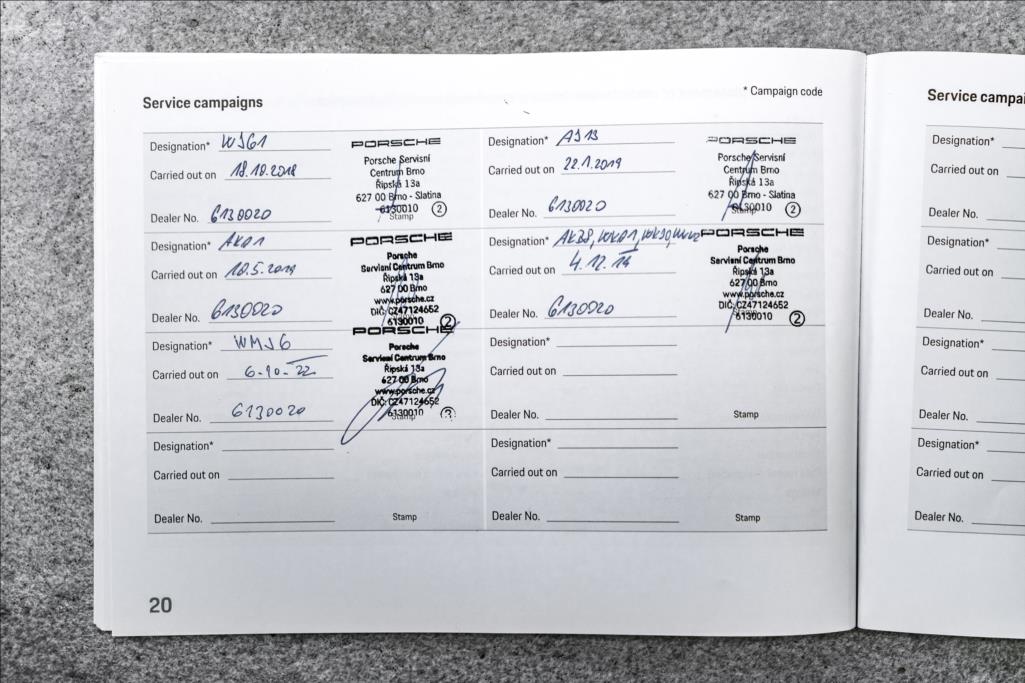 Service campaigns
* Campaign code
Designation* WJ61
Carried out on 18.10.2018
Dealer No. 6130020
PORSCHE
Porsche Servisní
Centrum Brno
Řipská 13a
627 00 Brno - Slatina
6130010 2
Stamp
Designation* AJ13
Carried out on 22.1.2019
Dealer No. 6130020
PORSCHE
Porsche Servisní
Centrum Brno
Řipská 13a
627 00 Brno - Slatina
6130010 2
Stamp
Designation* AK01
Carried out on 10.5.2019
Dealer No. 6130020
PORSCHE
Porsche
Servisní Centrum Brno
Řipská 13a
627 00 Brno
www.porsche.cz
DIČ: CZ47124652
6130010 2
Designation* AK38, WK01, WK30,
Carried out on 4.12.19
Dealer No. 6130020
PORSCHE
Porsche
Servisní Centrum Brno
Řipská 13a
627 00 Brno
www.porsche.cz
DIČ: CZ47124652
6130010 2
Designation* WMJ6
Carried out on 6-10-22
Dealer No. 6130020
PORSCHE
Porsche
Servisní Centrum Brno
Řipská 13a
627 00 Brno
www.porsche.cz
DIČ: CZ47124652
6130010 3
Stamp
Designation*
Carried out on
Dealer No.
Stamp
Designation*
Carried out on
Dealer No.
Stamp
Designation*
Carried out on
Dealer No.
Stamp
20
Service campai
Designation*
Carried out on
Dealer No.
Designation*
Carried out on
Dealer No.
Designation*
Carried out on
Dealer No.
Designation*
Carried out on
Dealer No.